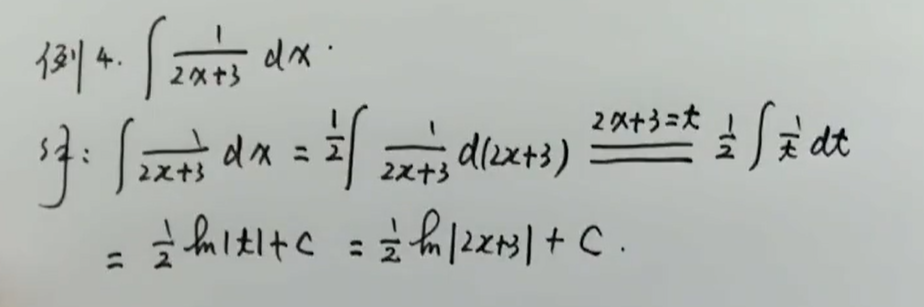 例4. ∫ 1/(2x+3) dx.
解: ∫ 1/(2x+3) dx = 1/2 ∫ 1/(2x+3) d(2x+3) \xlongequal{2x+3=t} 1/2 ∫ 1/t dt
= 1/2 ln|t|+C = 1/2 ln|2x+3|+C.